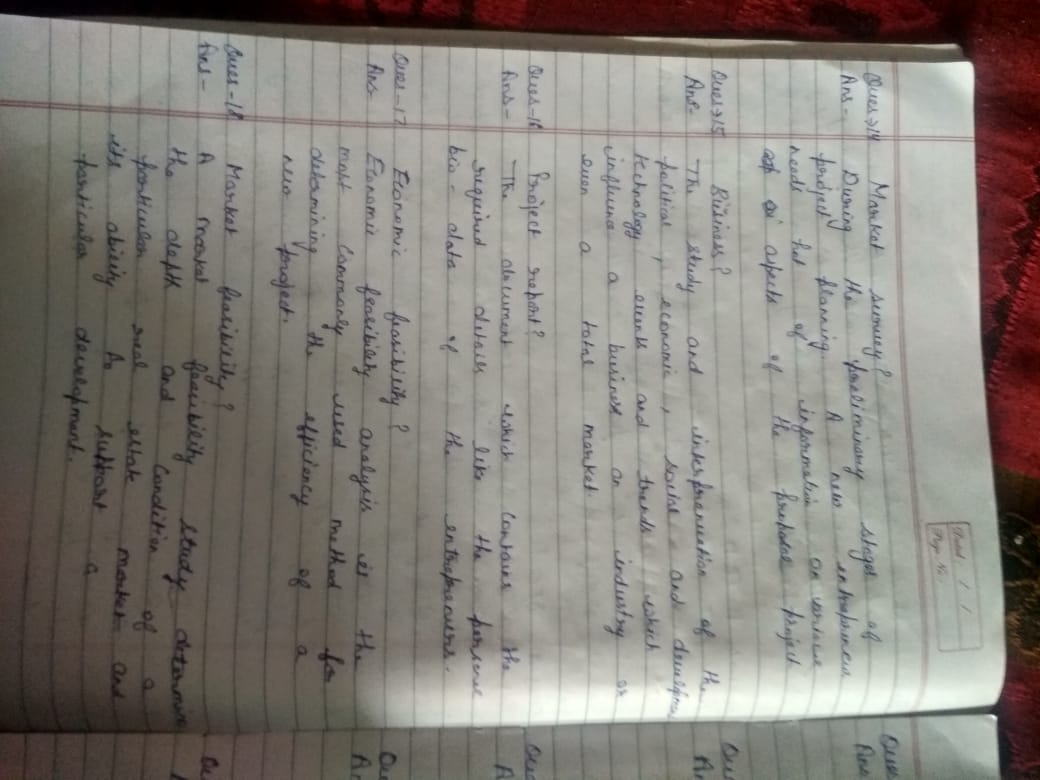 Dated: / /
Page No:
Ques→14 Market survey?
Ans- During the preliminary stages of
project planning. A new entrepreneur
needs hot of information on various
aspects of the proposal project
Ques→15 Business?
Ans- The study and of the
political, economic, social and developm
technology events and trends which
influence a business an industry or
even a total market.
Ques-16 Project report?
Ans- The document which contains the
required details like the personal
bio-data of the entrepreneurs.
Ques-17 Economic feasibility?
Ans Economic feasibility analysis is the
most commonly used method for
determining the efficiency of a
new project.
Ques-18 Market feasibility?
Ans- A market feasibility study determine
the depth and condition of a
particular real estate market and
its ability to support a
particular development.